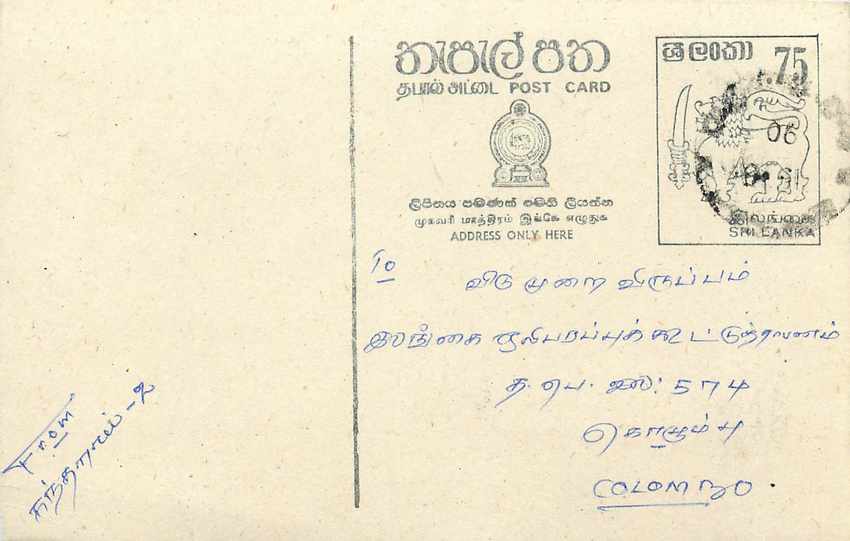 තැපැල් පත
தபால் அட்டை POST CARD
ලිපිනය පමණක් මෙහි ලියන්න
முகவரி மாத்திரம் இங்கே எழுதுக
ADDRESS ONLY HERE
ශ්‍රී ලංකා 75
06
இலங்கை
SRI LANKA
To
விடுமுறை விருப்பம்
இலங்கை ஒலிபரப்புக் கூட்டுத்தாபனம்
த. பெ. இல: 574
கொழும்பு
COLOMBO
From
கந்தளாய் - 2